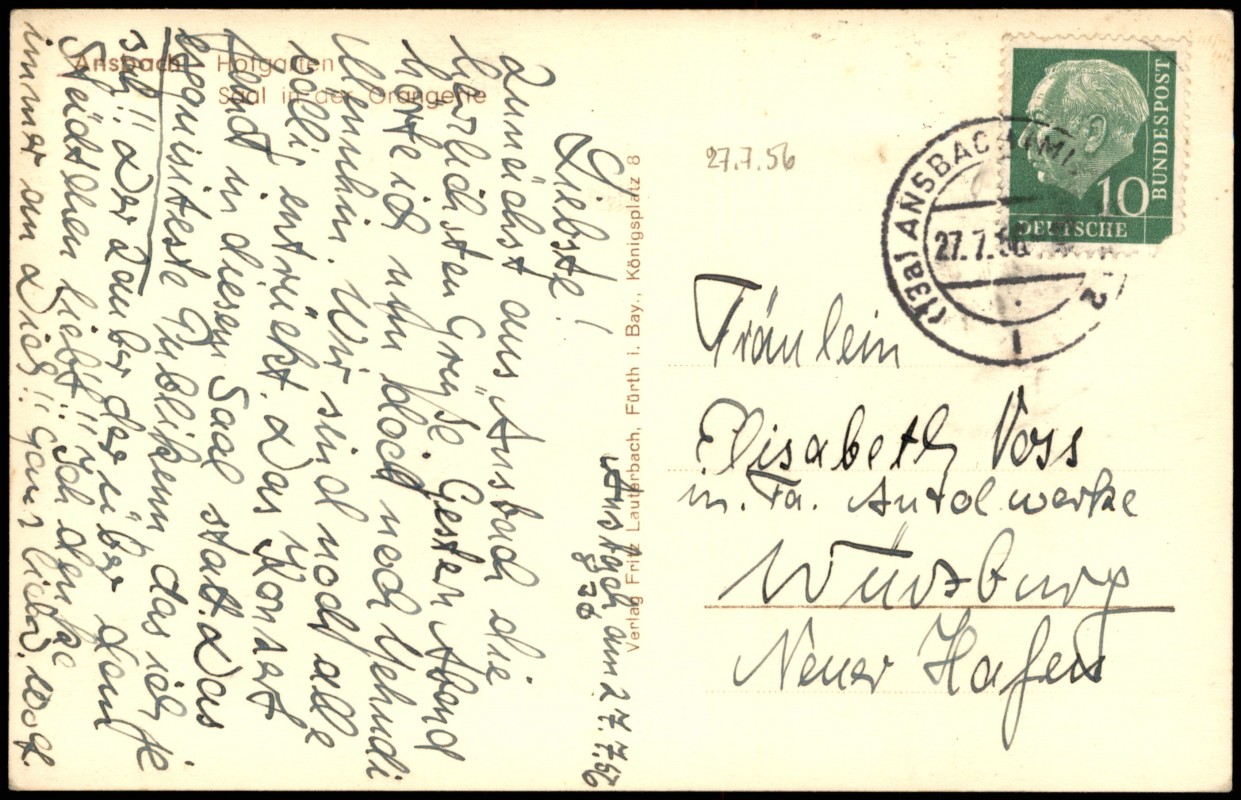 Ansbach Hofgarten
Saal in der Orangerie
Ansbach am 27.7.56
Liebste!
Zunächst aus Ansbach die
herzlichsten Grüße. Gestern Abend
hörte ich nun doch noch Yehudi
Menuhin. Wir sind noch alle
voll entrückt. Das Konzert
fand in diesem Saal statt. Das
eleganteste Publikum das ich je
sah!! Der Zauber der über dem
Städtchen liegt!! Ich denke
immer an Dich!! Ganz lieb,
Verlag Fritz Lauterbach, Fürth i. Bay., Königsplatz 8
27.7.56
DEUTSCHE
BUNDESPOST
10
(13a) ANSBACH
27.7.56
2
Fräulein
Elisabeth Voss
in Fa. Aurol werke
Würzburg
Neuer Hafen